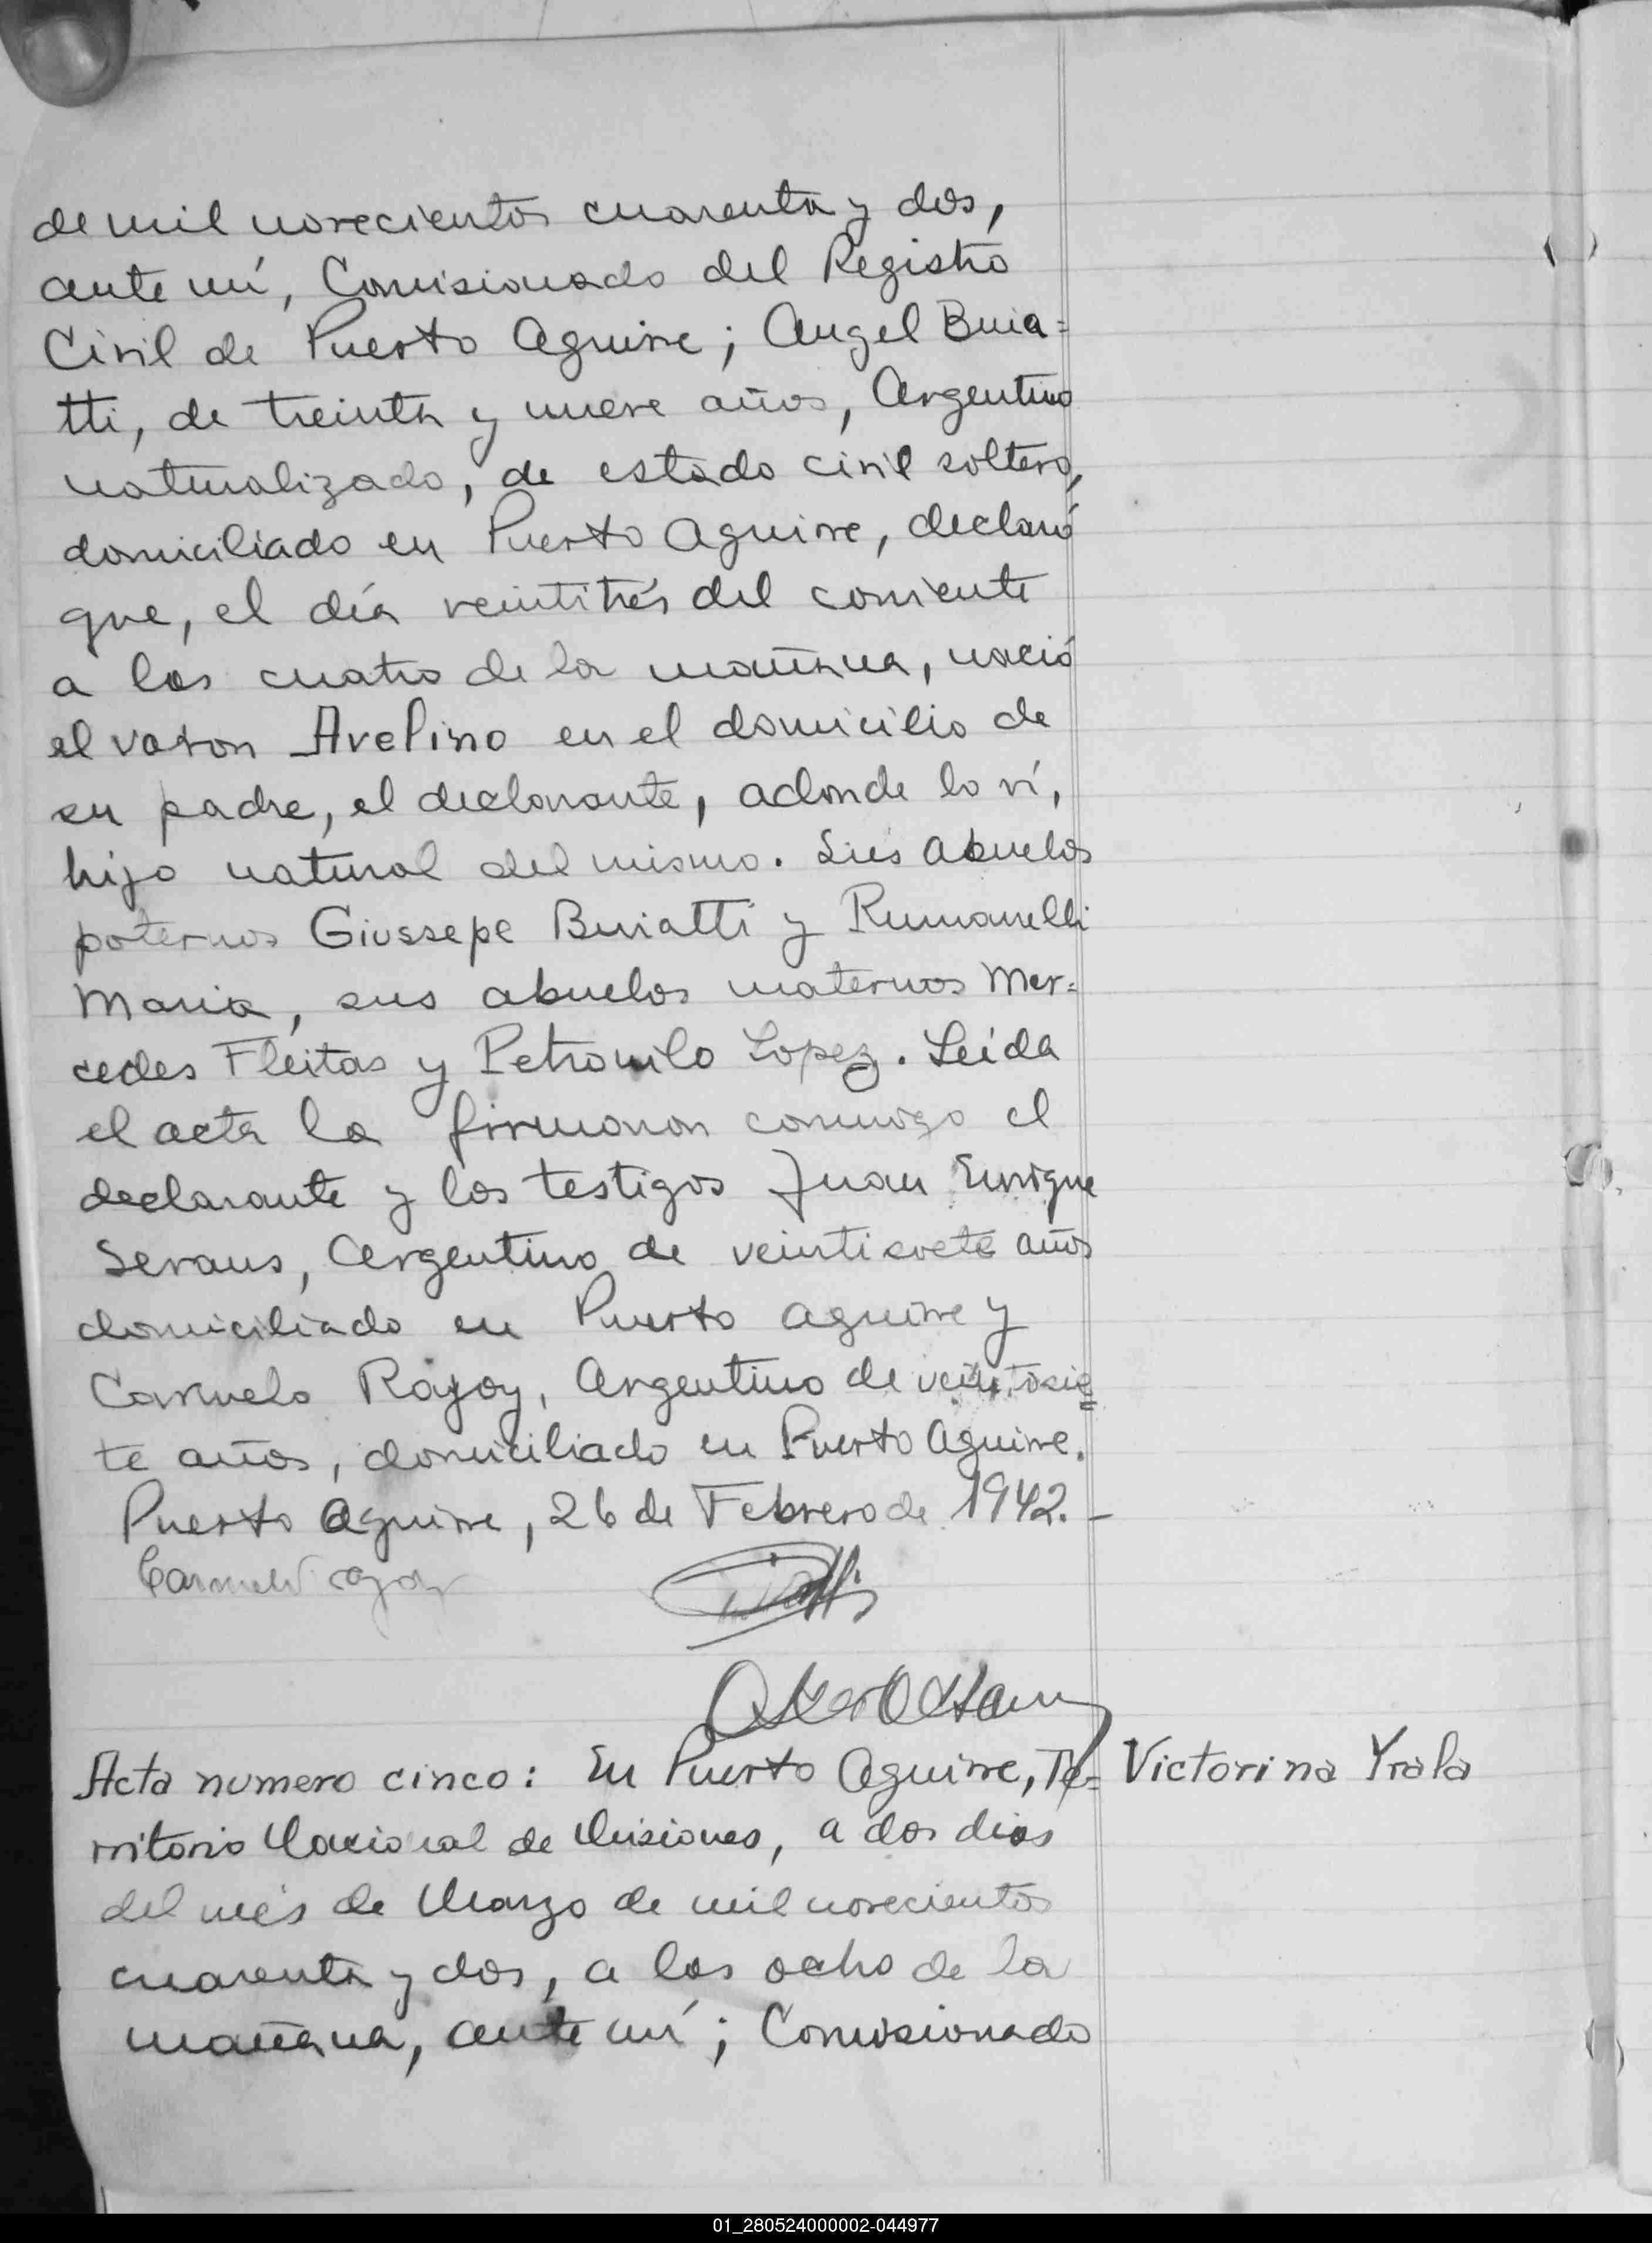 de mil novecientos cuarenta y dos,
ante mí, Comisionado del Registro
Civil de Puerto Aguirre; Angel Buia=
tti, de treinta y nueve años, Argentino
naturalizado, de estado civil soltero,
domiciliado en Puerto Aguirre, declaró
que, el día veintitrés del corriente
a las cuatro de la mañana, nació
el varon Avelino en el domicilio de
su padre, el declarante, adonde lo ví,
hijo natural del mismo. Sus abuelos
paternos Giussepe Buiatti y Rumanelli
Maria, sus abuelos maternos Mer=
cedes Fleitas y Petronilo Lopez. Leída
el acta la firmaron conmigo el
declarante y los testigos Juan Enrique
Seraus, Argentino de veintisiete años
domiciliado en Puerto Aguirre y
Carmelo Rajoy, Argentino de veintisie=
te años, domiciliado en Puerto Aguirre.
Puerto Aguirre, 26 de Febrero de 1942.-
Acta numero cinco: En Puerto Aguirre, Te=
Victorina Yrala
rritorio Nacional de Misiones, a dos dias
del més de Marzo de mil novecientos
cuarenta y dos, a las ocho de la
mañana, ante mí; Comisionado
01_280524000002-044977